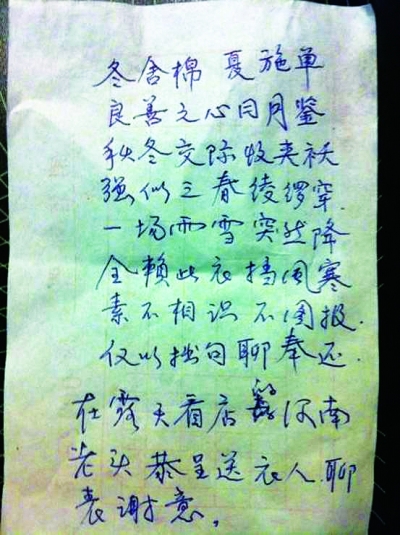 冬舍棉 夏施单
良善之心日月鉴
秋冬交际收夹袄
强似三春绫穿.
一场雨雪突然降
全赖此衣挡风寒
素不相识不图报.
仅以拙句聊奉还.
在露天看店河南
老头恭呈送衣人.聊
表谢意。